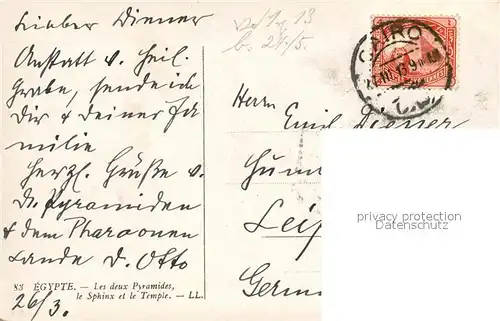 Lieber Diener
Anstatt v. heil.
Grabe, sende ich
Dir & deiner Fa
milie
herzl. Grüße v.
d. Pyramiden
& dem Pharaonen
Lande d. Otto
83 ÉGYPTE. — Les deux Pyramides,
le Sphinx et le Temple. — LL.
26/3.
CAIRO
Herrn
Emil Diener
Leip
Germ
privacy protection
Datenschutz